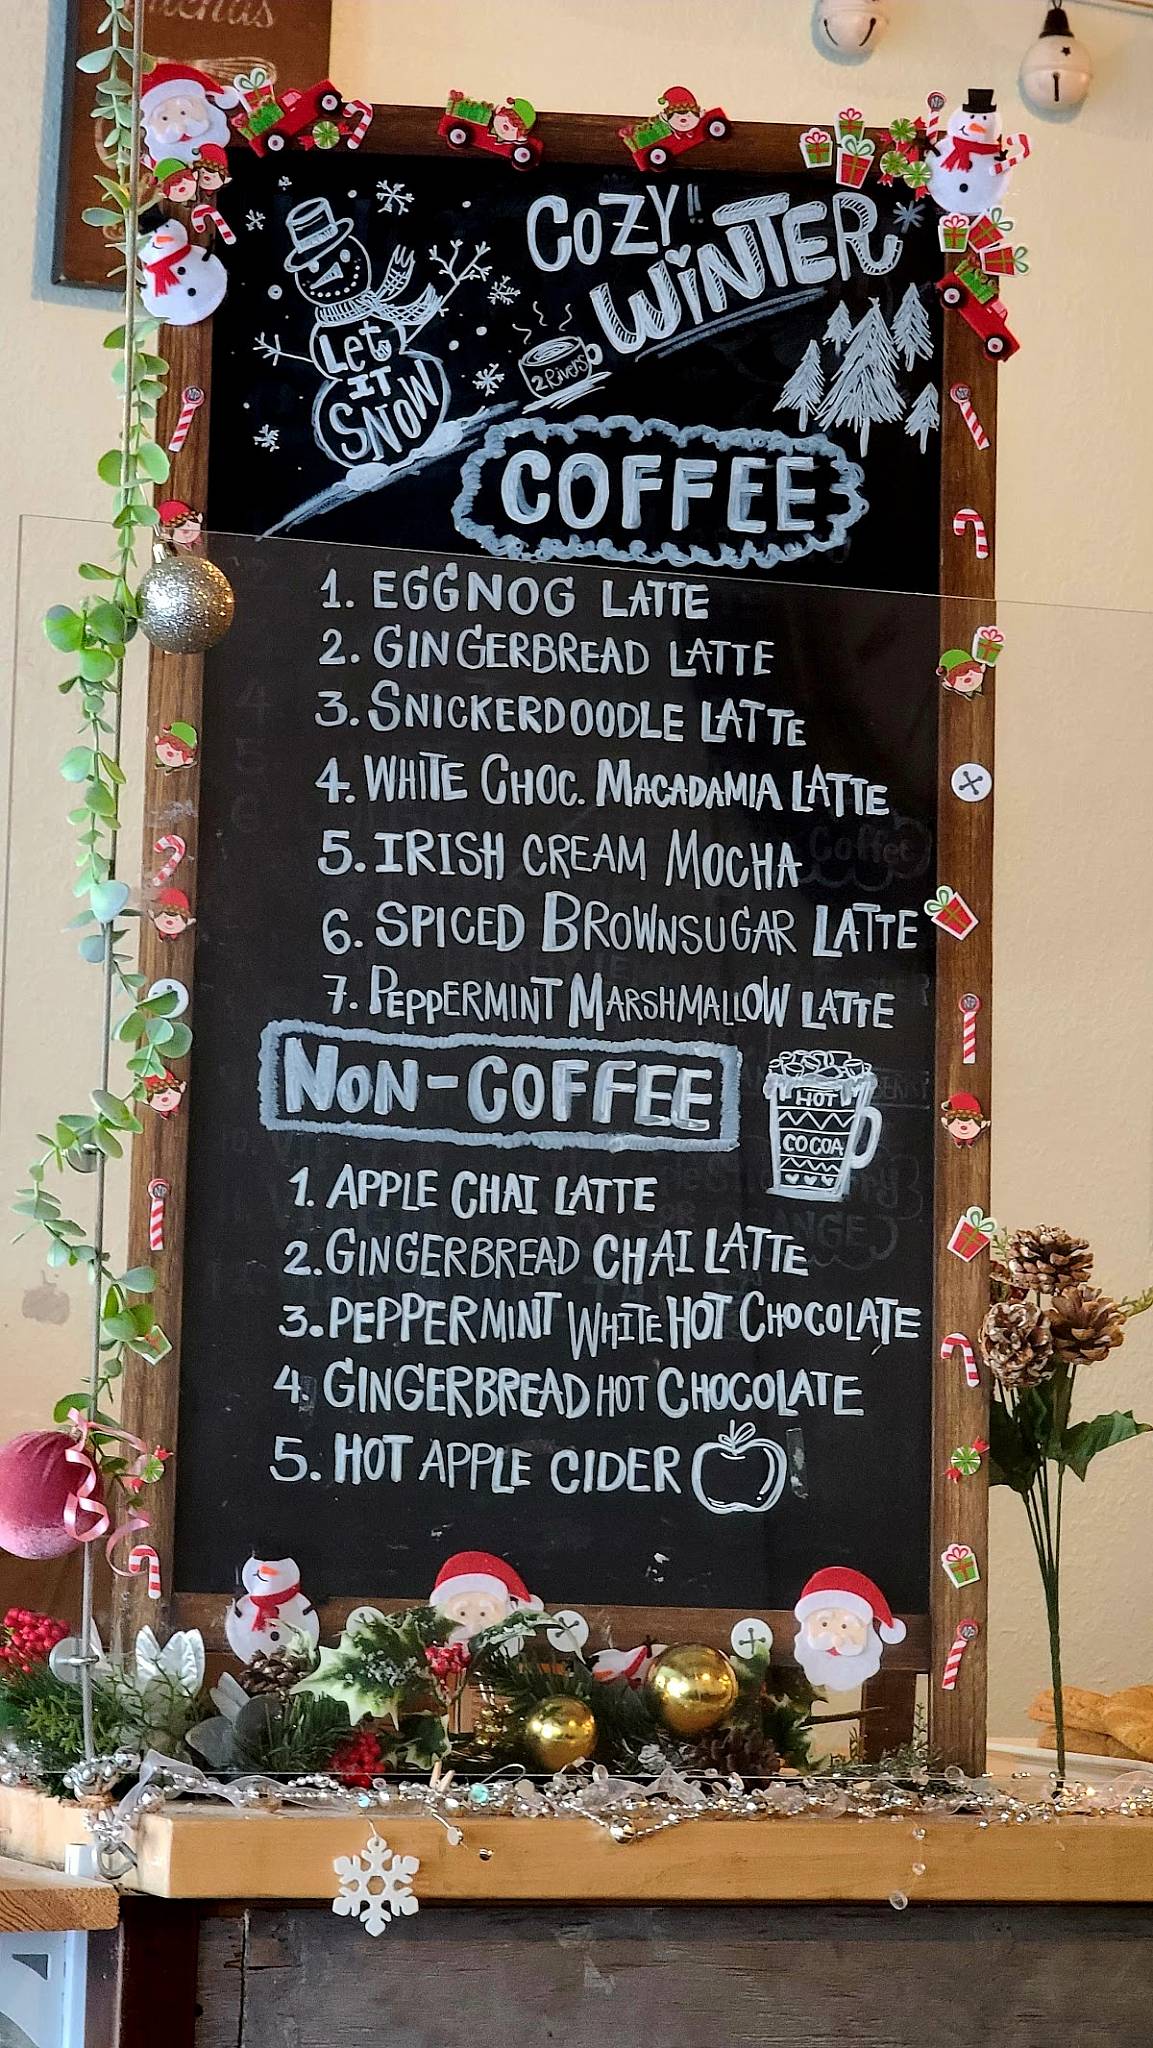 menus
COZY
WINTER
Let
IT
SNOW
2 Rivers
COFFEE
1. EGGNOG LATTE
2. GINGERBREAD LATTE
3. SNICKERDOODLE LATTE
4. WHITE CHOC. MACADAMIA LATTE
5. IRISH CREAM MOCHA
6. SPICED BROWNSUGAR LATTE
7. PEPPERMINT MARSHMALLOW LATTE
NON-COFFEE
HOT
COCOA
1. APPLE CHAI LATTE
2. GINGERBREAD CHAI LATTE
3. PEPPERMINT WHITE HOT CHOCOLATE
4. GINGERBREAD HOT CHOCOLATE
5. HOT APPLE CIDER